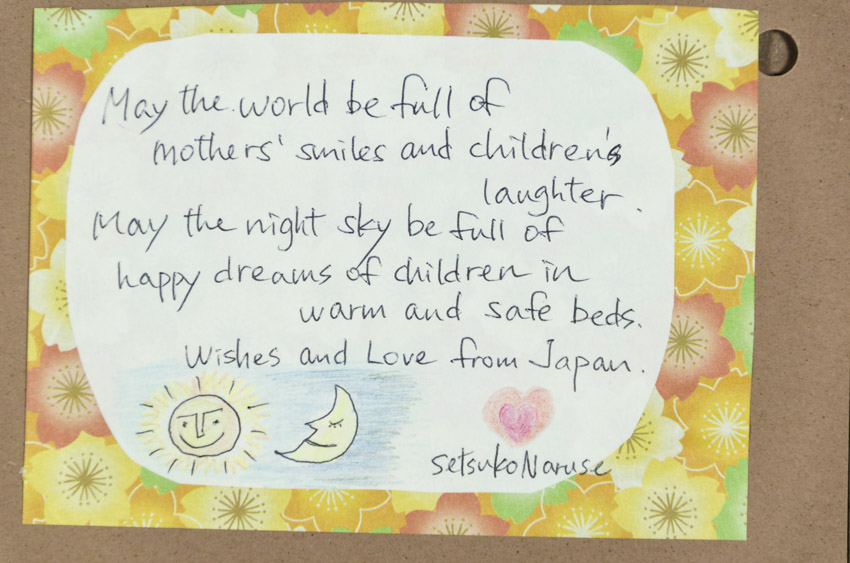 May the world be full of
mothers' smiles and children's
laughter.
May the night sky be full of
happy dreams of children in
warm and safe beds.
Wishes and Love from Japan.
Setsuko Naruse